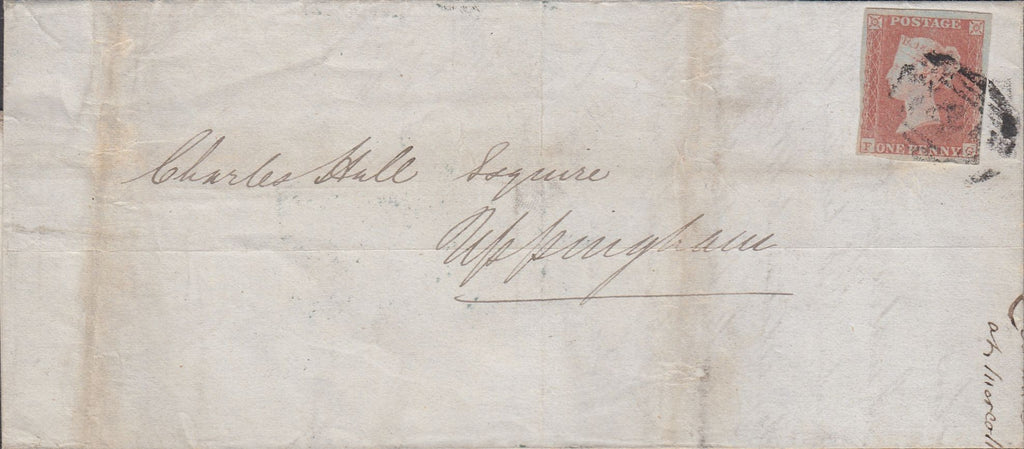 POSTAGE
F ONE PENNY G
Charles Hall Esquire
Uppingham
at Morcott